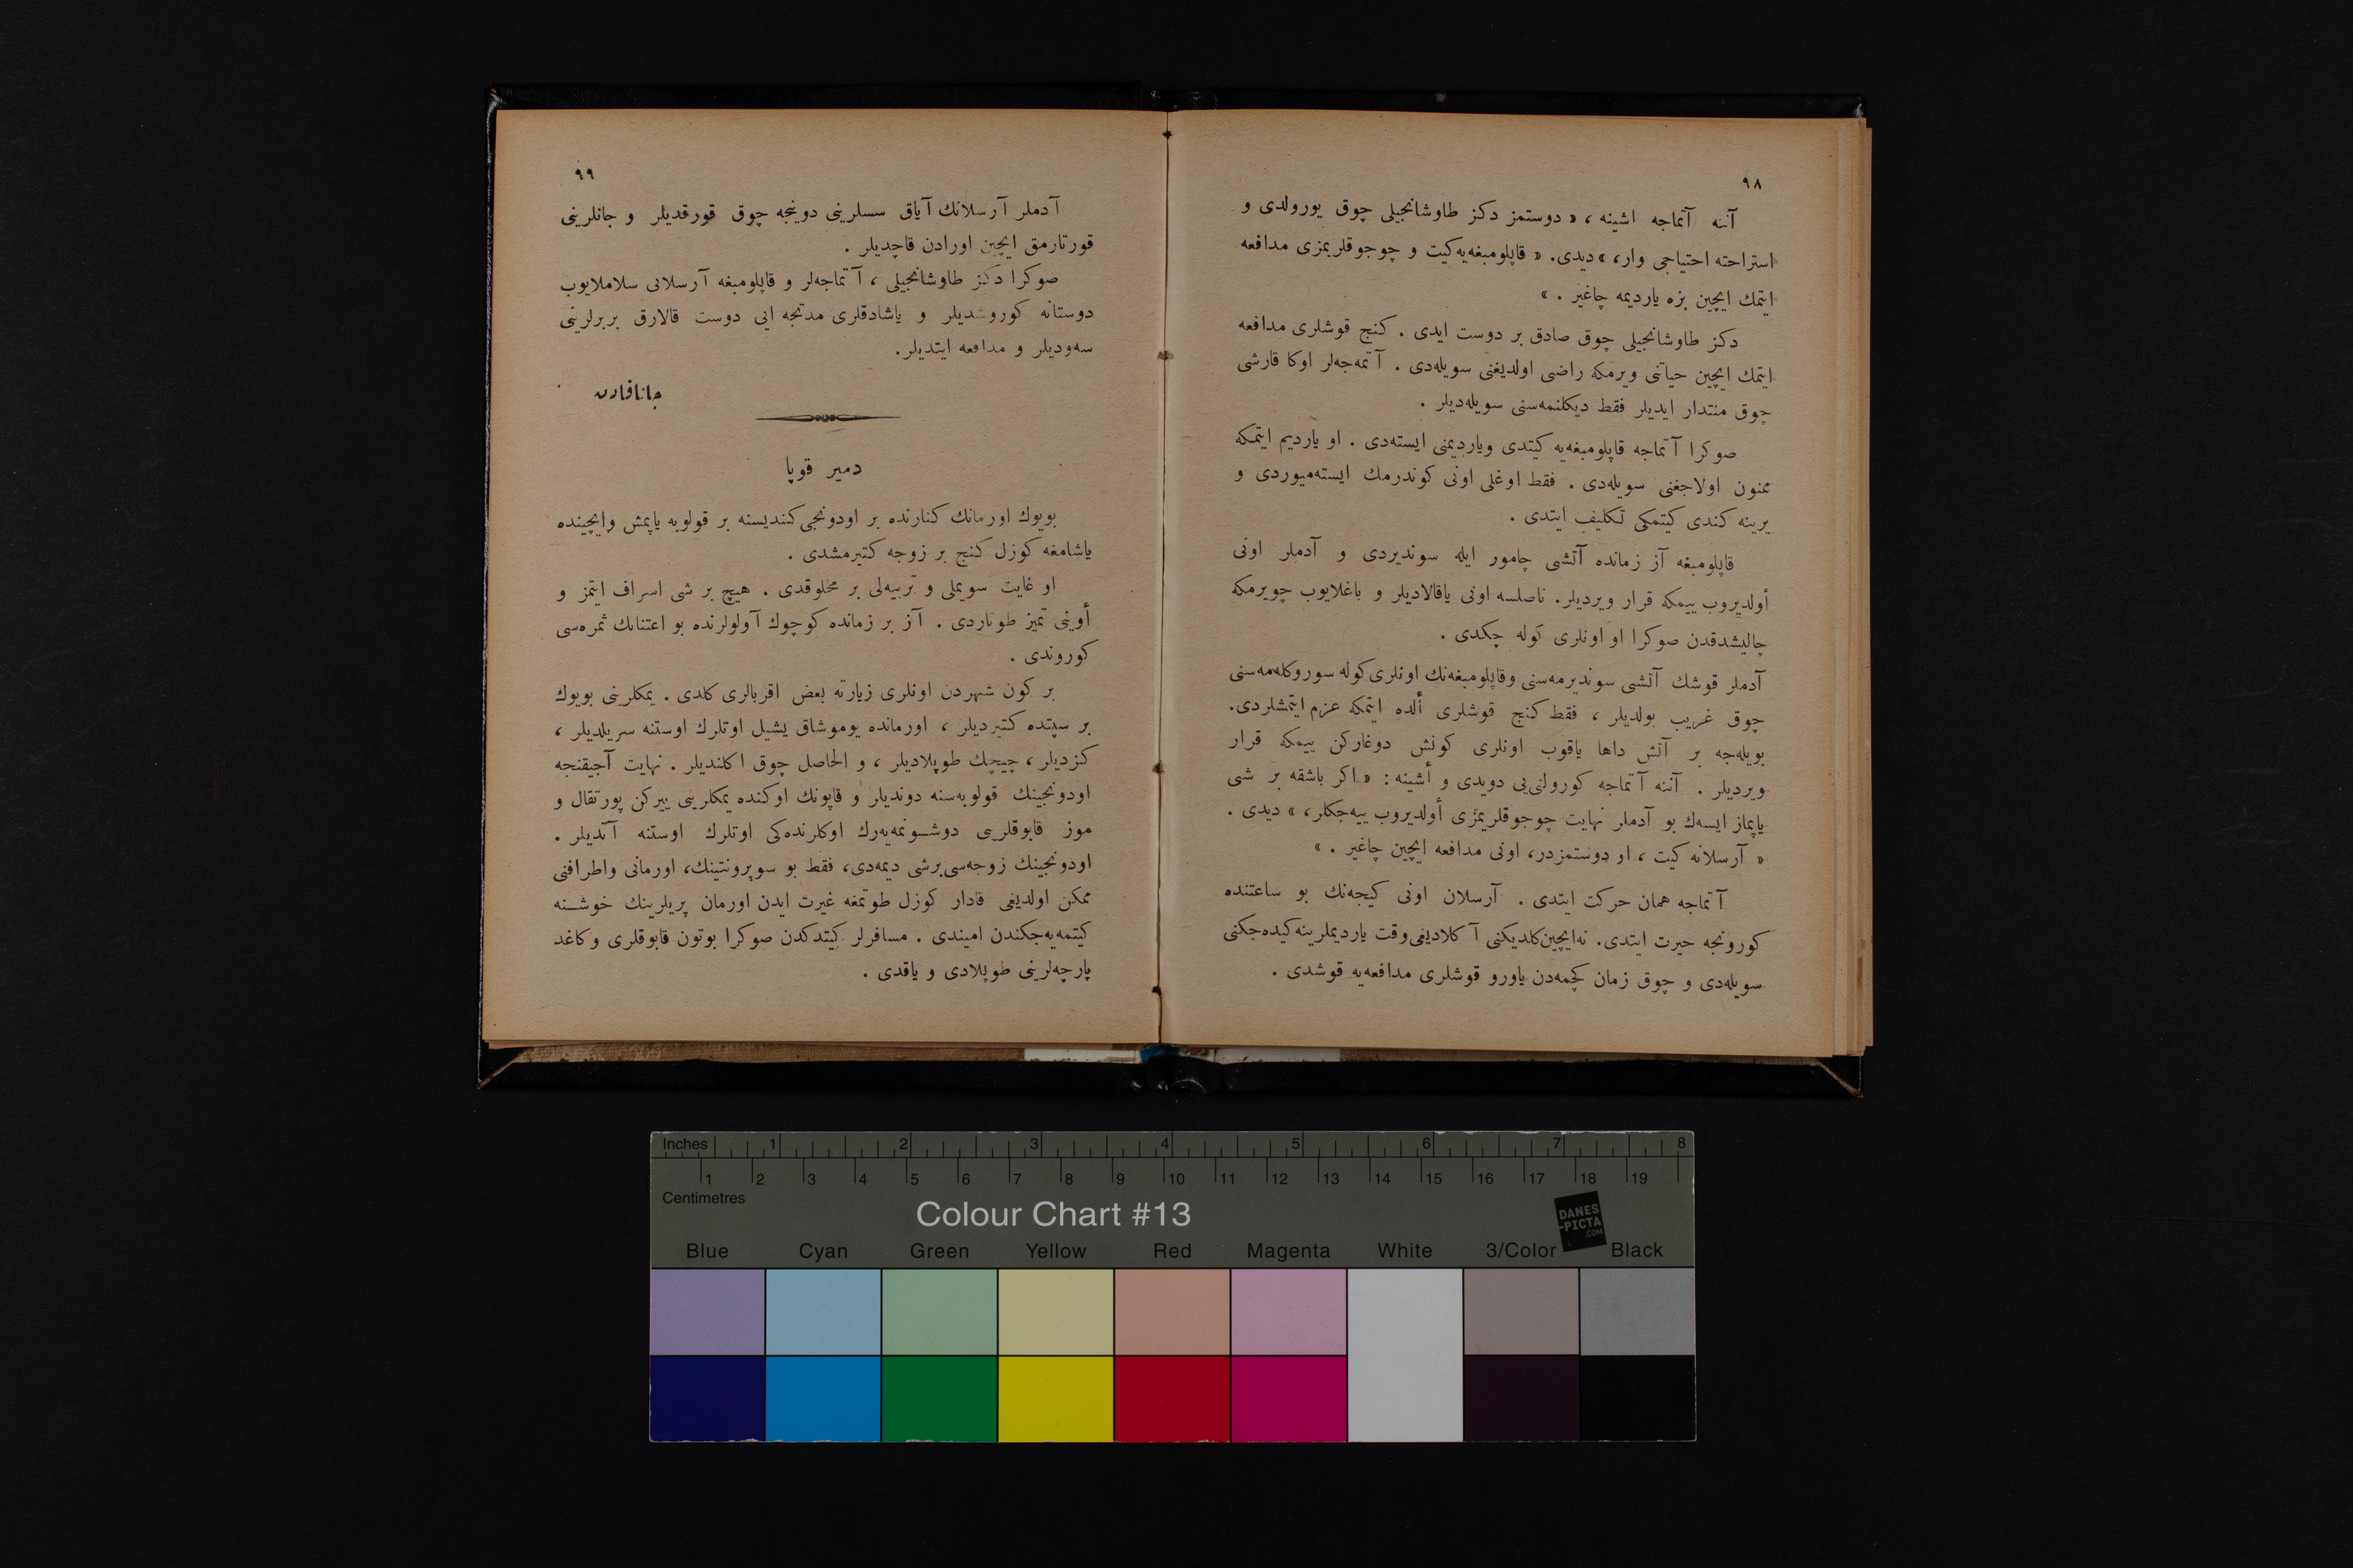 ٩٨
آننه آتماجه اشینه ، « دوستمز دکز طاوشانجیلی چوق یورولدی و
استراحته احتیاجی وار، » دیدی. « قاپلومبغه‌یه کیت و چوجوقلریمزی مدافعه
ایتمك ایچین بزه یاردیمه چاغیر . »
دکز طاوشانجیلی چوق صادق بر دوست ایدی . کنج قوشلری مدافعه
ایتمك ایچین حیاتنی ویرمکه راضی اولدیغنی سویله‌دی . آتمه‌جه‌لر اوکا قارشی
چوق منتدار ایدیلر فقط دیکلنمه‌سنی سویله‌دیلر .
صوکرا آتماجه قاپلومبغه‌یه کیتدی ویاردیمنی ایسته‌دی . او یاردیم ایتمکه
ممنون اولاجغنی سویله‌دی . فقط اوغلی اونی کوندرمك ایسته‌میوردی و
یرینه کندی کیتمکی تکلیف ایتدی .
قاپلومبغه آز زمانده آتشی چامور ایله سوندیردی و آدملر اونی
أولدیروب ییمکه قرار ویردیلر. ناصلسه اونی یاقالادیلر و باغلایوب چویرمکه
چالیشدقدن صوکرا او اونلری کوله چکدی .
آدملر قوشك آتشی سوندیرمه‌سنی وقاپلومبغه‌نك اونلری کوله سوروکله‌مه‌سنی
چوق غریب بولدیلر ، فقط کنج قوشلری ألده ایتمکه عزم ایتمشلردی.
بویله‌جه بر آتش داها یاقوب اونلری کونش دوغارکن ییمکه قرار
ویردیلر . آننه آتماجه کورولتی‌یی دویدی و أشینه : « اکر باشقه بر شی
یاپماز ایسه‌ك بو آدملر نهایت چوجوقلریمزی أولدیروب ییه‌جکلر، » دیدی .
« آرسلانه کیت ، او دوستمزدر، اونی مدافعه ایچین چاغیر . »
آتماجه همان حرکت ایتدی . آرسلان اونی کیجه‌نك بو ساعتنده
کورونجه حیرت ایتدی. نه‌ایچین کلدیکنی آکلادیغی وقت یاردیملرینه کیده‌جکنی
سویله‌دی و چوق زمان کچمه‌دن یاورو قوشلری مدافعه‌یه قوشدی .
٩٩
آدملر آرسلانك آیاق سسلرینی دوینجه چوق قورقدیلر و جانلرینی
قورتارمق ایچین اورادن قاچدیلر .
صوکرا دکز طاوشانجیلی ، آتماجه‌لر و قاپلومبغه آرسلانی سلاملایوب
دوستانه کوروشدیلر و یاشادقلری مدتجه ایی دوست قالارق بربرلرینی
سه‌ودیلر و مدافعه ایتدیلر.
دمیر قوپا
بویوك اورمانك کنارنده بر اودونجی کندیسنه بر قولوبه یاپمش وایچینده
یاشامغه کوزل کنج بر زوجه کتیرمشدی .
او غایت سویملی و تربیه‌لی بر مخلوقدی . هیچ بر شی اسراف ایتمز و
أوینی تمیز طوتاردی . آز بر زمانده کوچوك آولولرنده بو اعتنانك ثمره‌سی
کوروندی .
بر کون شهردن اونلری زیارته بعض اقربالری کلدی . یمکلرینی بویوك
بر سپتده کتیردیلر ، اورمانده یوموشاق یشیل اوتلرك اوستنه سریلدیلر ،
کزدیلر ، چیچك طوپلادیلر ، و الحاصل چوق اکلندیلر . نهایت آجیقنجه
اودونجینك قولوبه‌سنه دوندیلر و قاپونك اوکنده یمکلرینی ییرکن پورتقال و
موز قابوقلرینی دوشونمه‌یه‌رك اوکلرنده‌کی اوتلرك اوستنه آتدیلر .
اودونجینك زوجه‌سی برشی دیمه‌دی، فقط بو سوپرونتینك، اورمانی واطرافنی
ممکن اولدیغی قادار کوزل طوتمغه غیرت ایدن اورمان پریلرینك خوشنه
کیتمه‌یه‌جکندن امیندی . مسافرلر کیتدکدن صوکرا بوتون قابوقلری وکاغد
پارچه‌لرینی طوپلادی و یاقدی .
Inches 1 2 3 4 5 6 7 8
1 2 3 4 5 6 7 8 9 10 11 12 13 14 15 16 17 18 19
Centimetres
Colour Chart #13
DANES
-PICTA
.COM
Blue Cyan Green Yellow Red Magenta White 3/Color Black